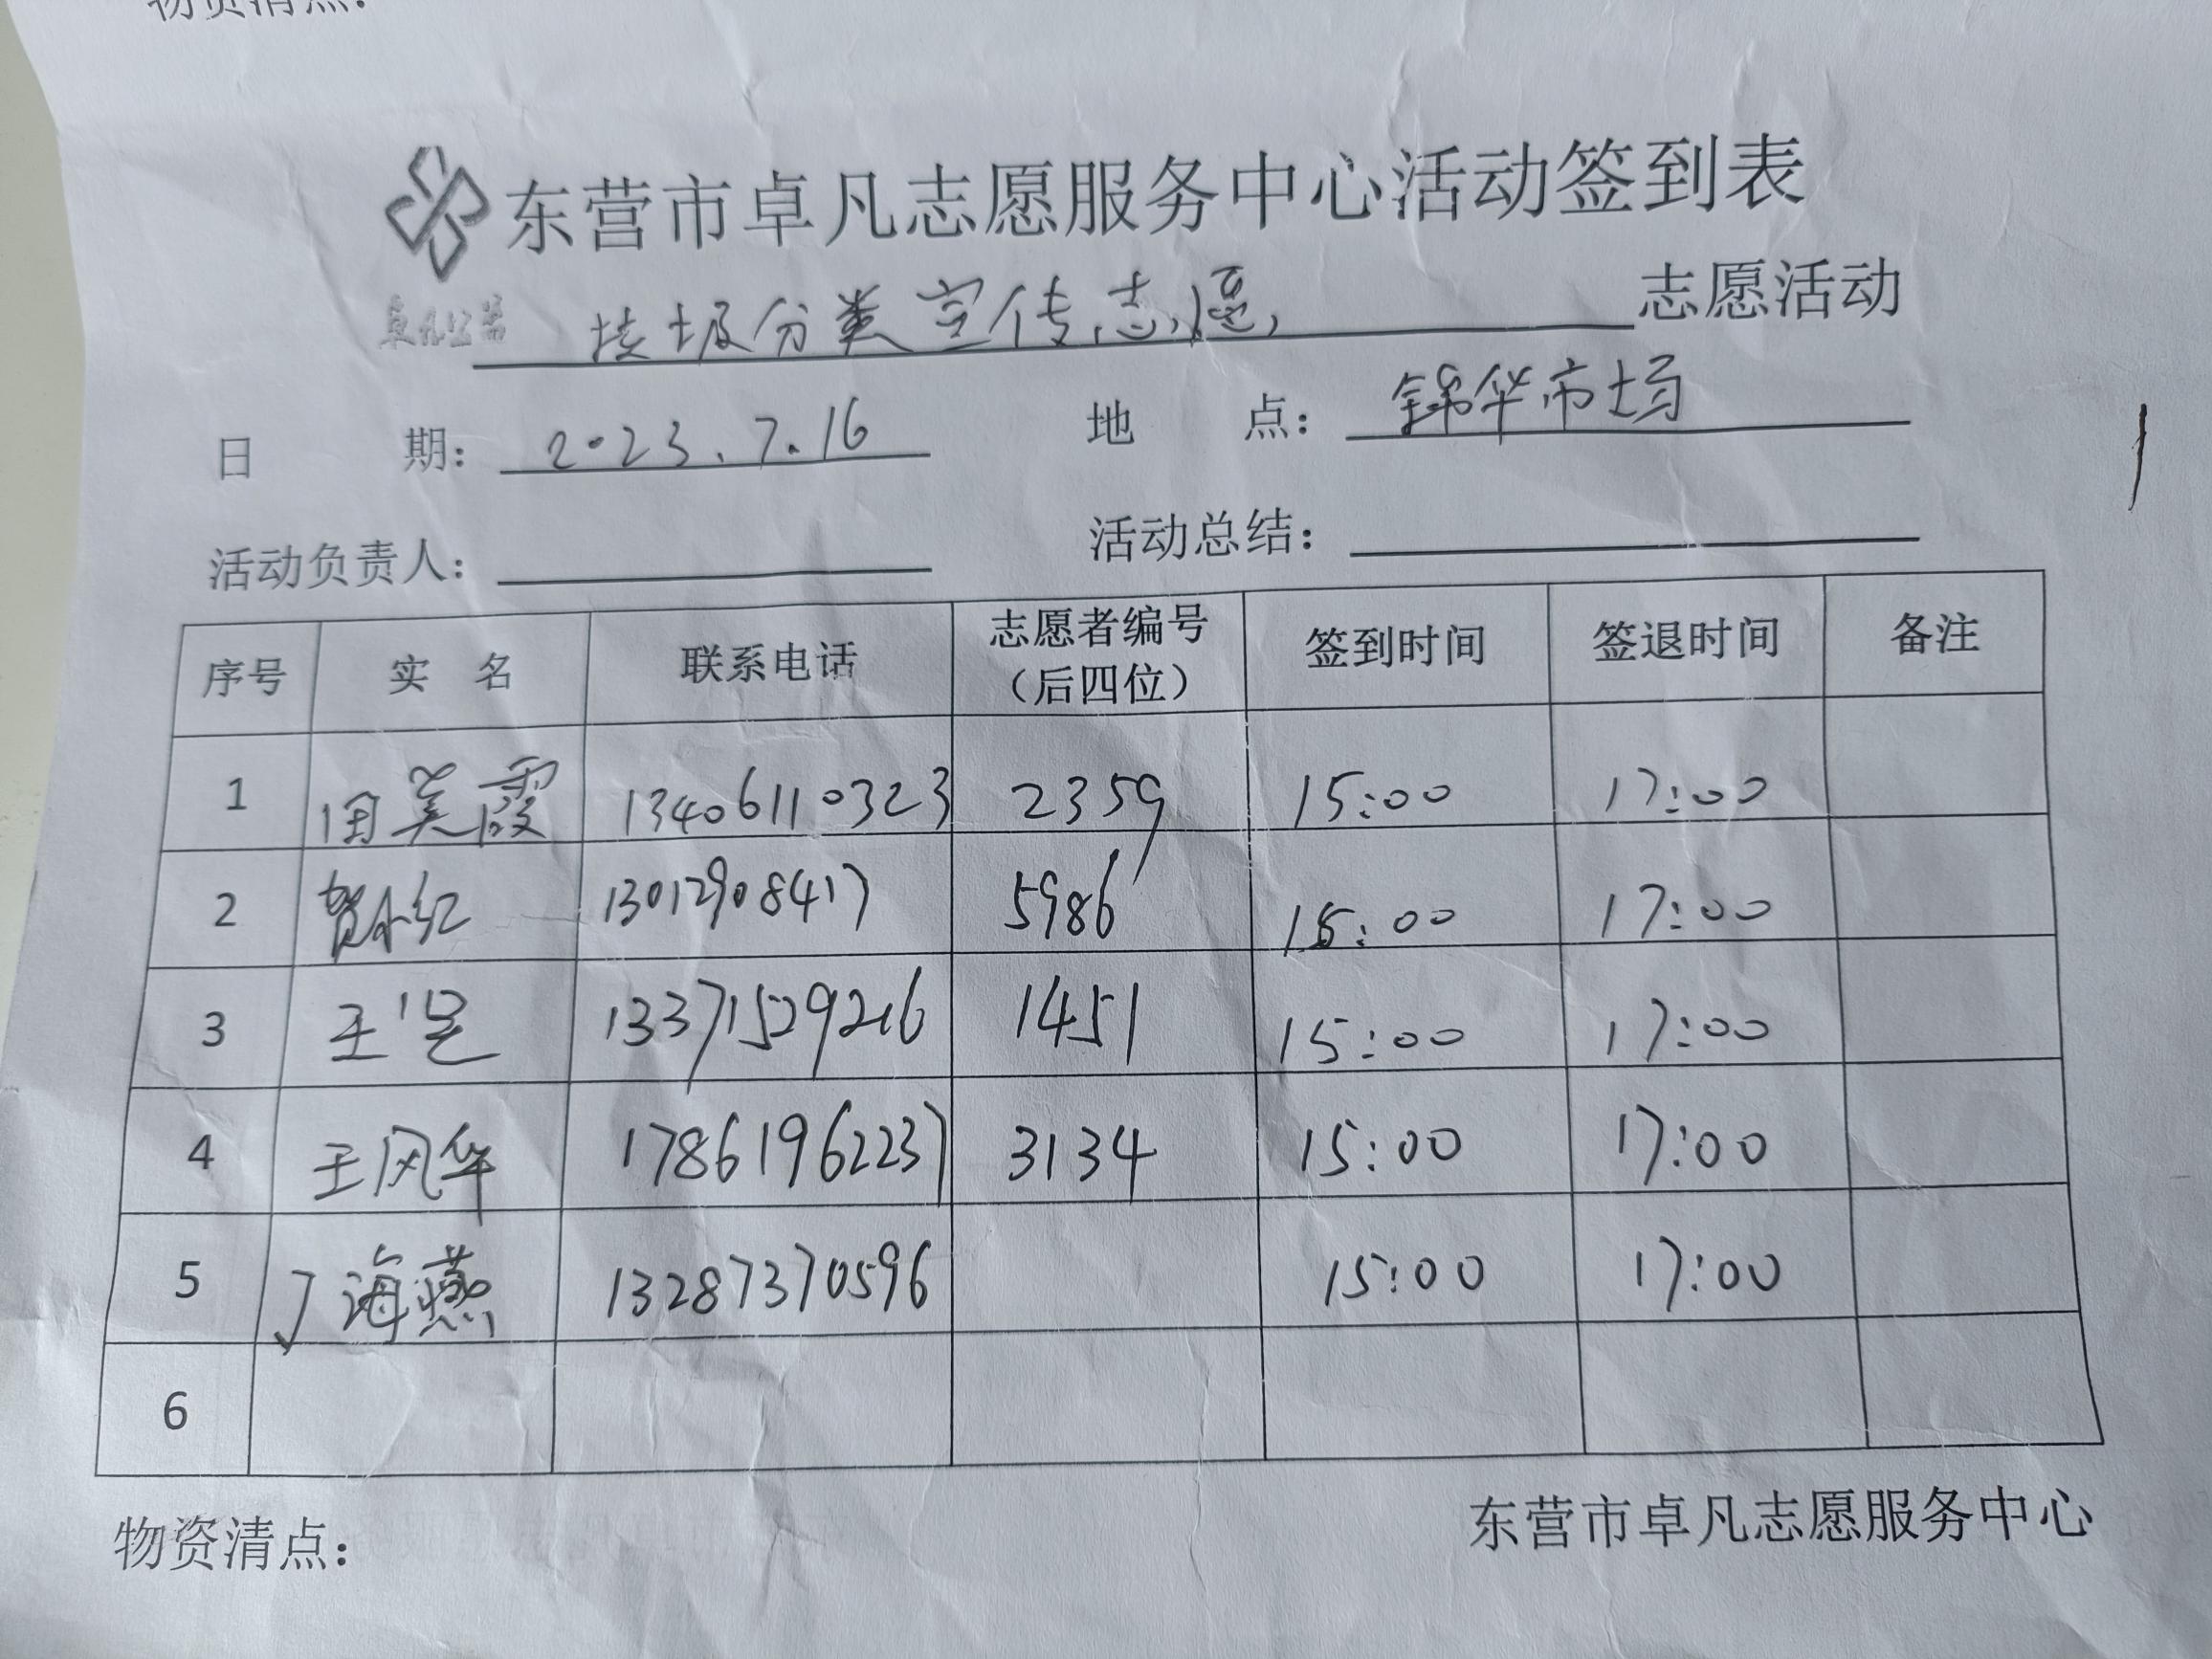 物资清点：
东营市卓凡志愿服务中心活动签到表
卓凡公益
垃圾分类宣传志愿 志愿活动
日 期： 2023.7.16 地 点： 锦华市场
活动负责人： 活动总结：
序号 实 名 联系电话 志愿者编号（后四位） 签到时间 签退时间 备注
1 国美霞 13406110323 2359 15:00 17:00
2 贺小红 13012908417 5986 15:00 17:00
3 王 13371529216 1451 15:00 17:00
4 王风华 17861962237 3134 15:00 17:00
5 丁海燕 13287370596 15:00 17:00
6
物资清点：
东营市卓凡志愿服务中心